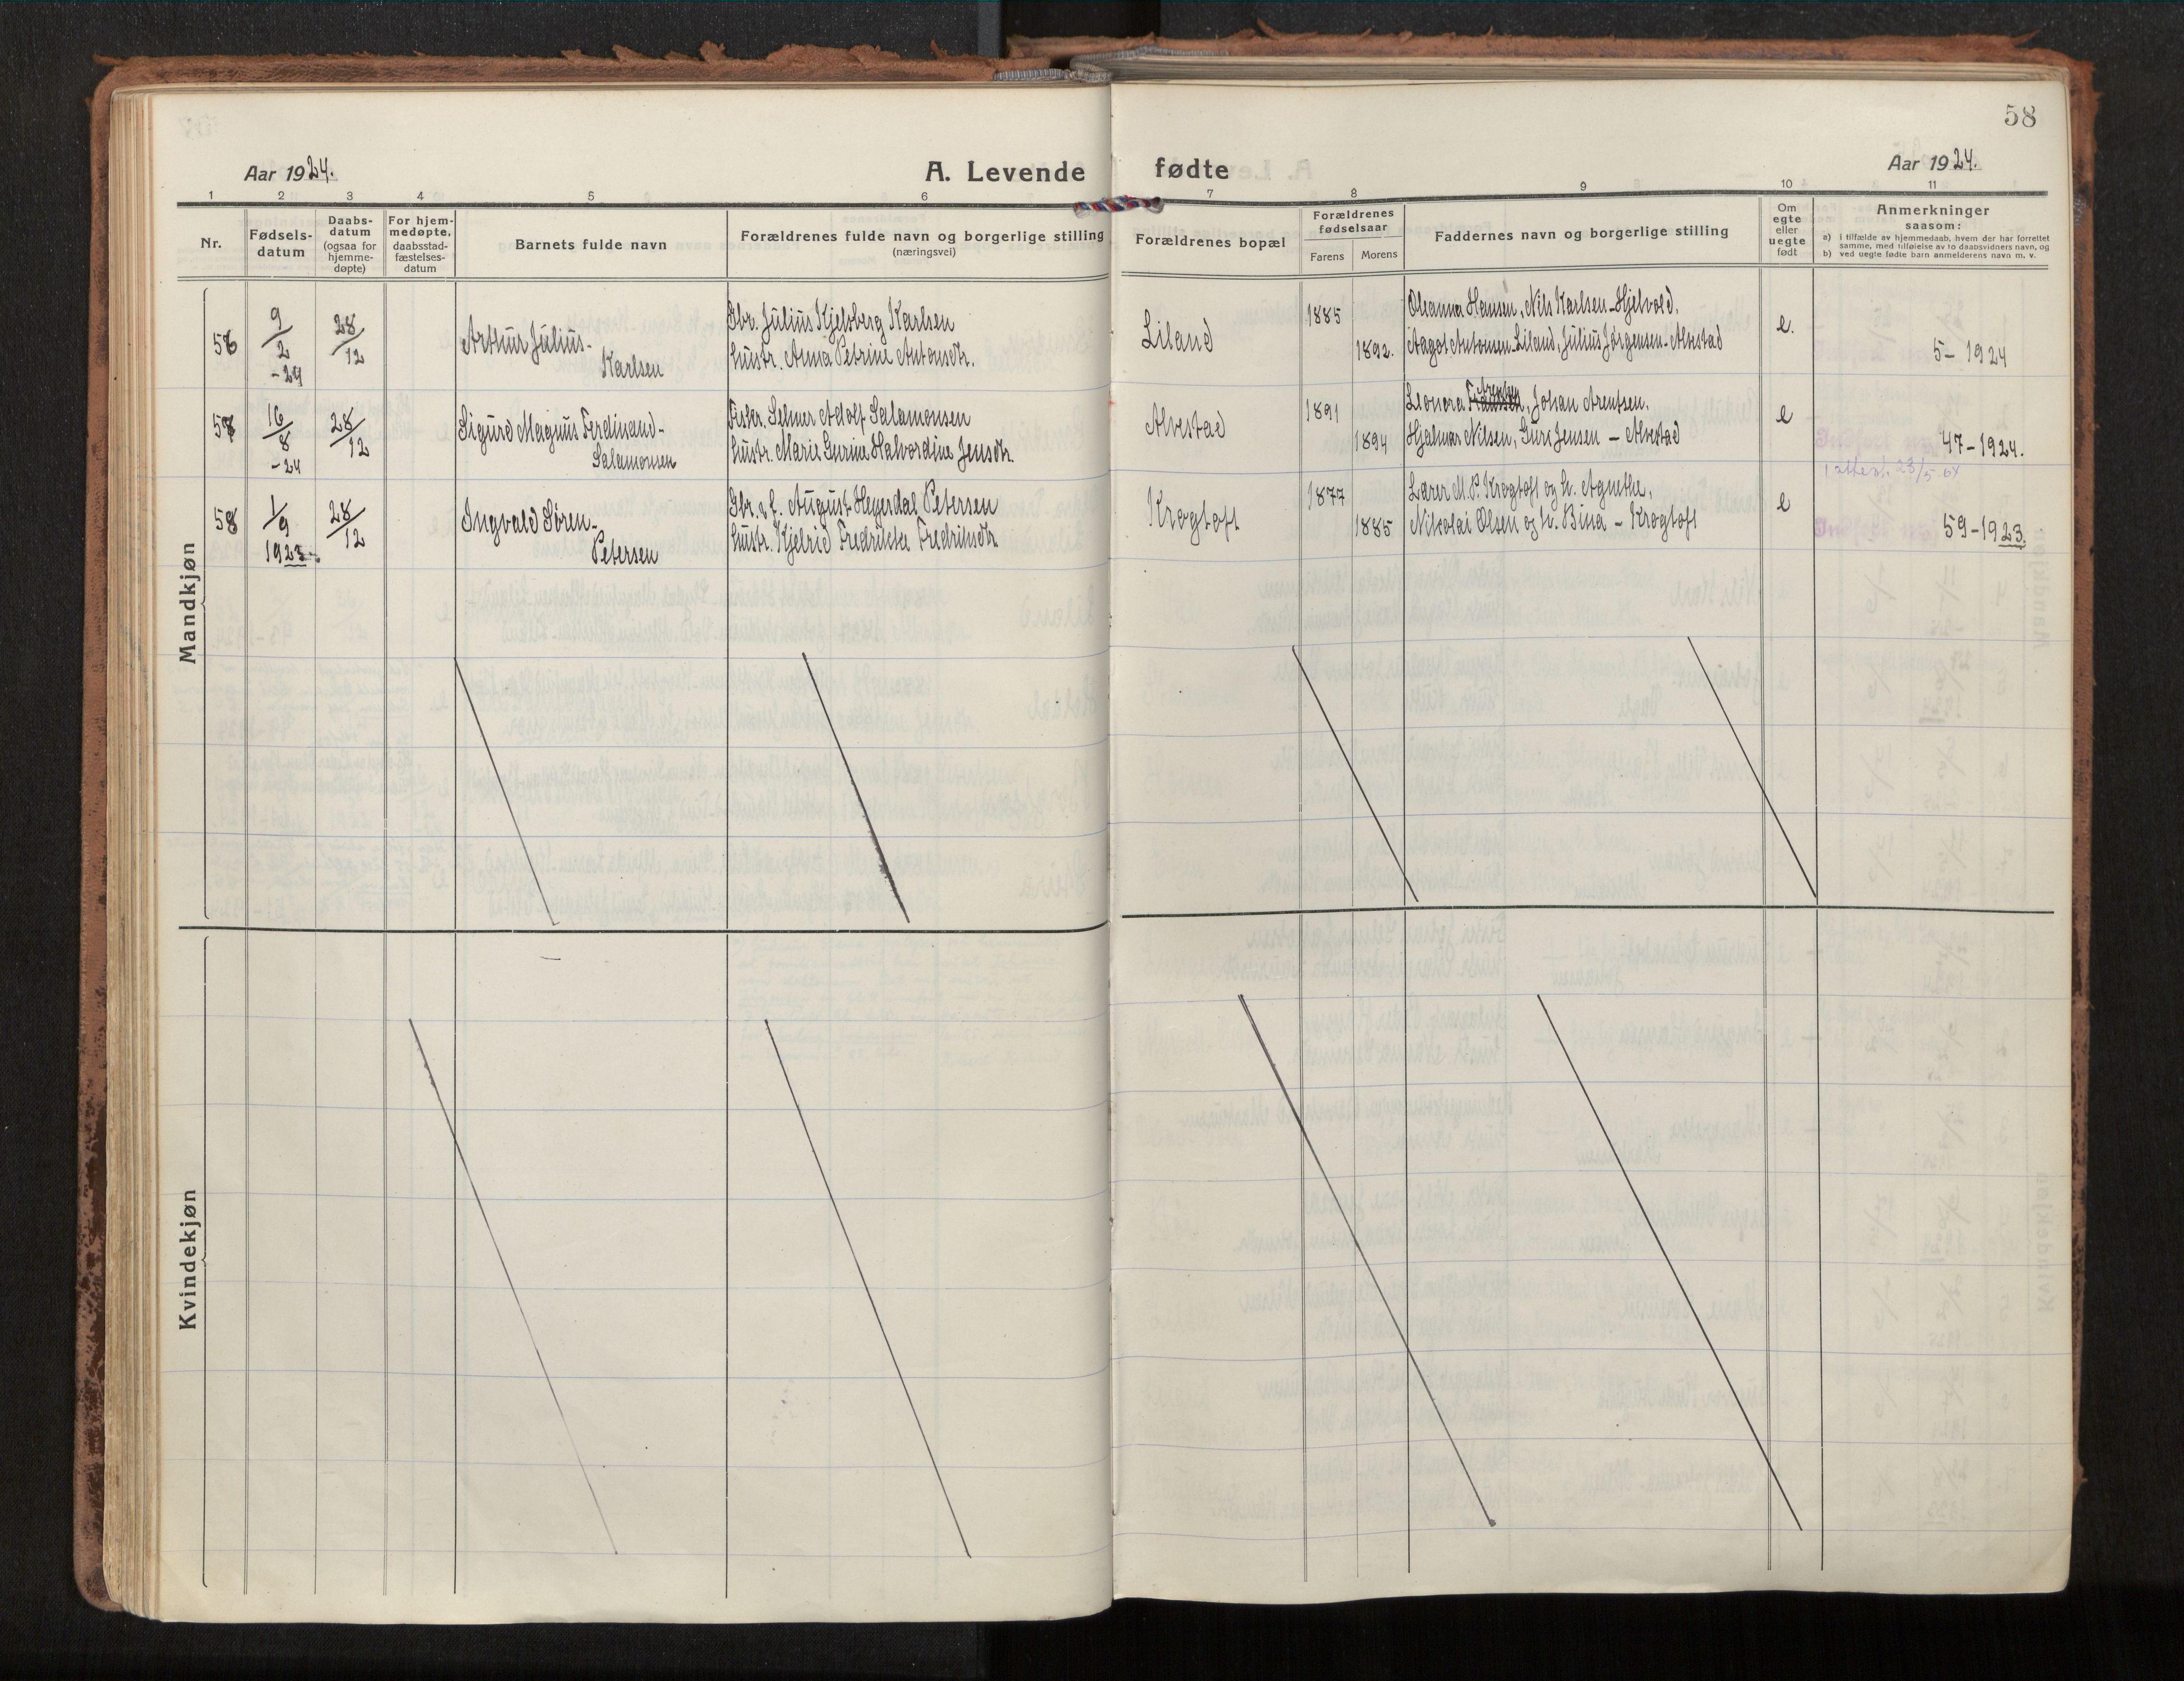 58
Aar 1924.
A. Levende
fødte
Aar 1924.
1 2 3 4 5 6 7 8 9 10 11
Nr.
Fødsels-
datum
Daabs-
datum
(ogsaa for
hjemme-
døpte)
For hjem-
medøpte,
daabsstad-
fæstelses-
datum
Barnets fulde navn
Forældrenes fulde navn og borgerlige stilling
(næringsvei)
Forældrenes bopæl
Forældrenes
fødselsaar
Farens
Morens
Faddernes navn og borgerlige stilling
Om
egte
eller
uegte
født
Anmerkninger
saasom:
a) i tilfælde av hjemmedaab, hvem der har forrettet
samme, med tilføielse av to daabsvidners navn, og
b) ved uegte fødte barn anmelderens navn m. v.
Mandkjøn
56
9/2
-24
28/12
Arthur Julius-
Karlsen
Gbr. Julius Kjelsberg Karlsen
hustr. Anna Petrine Antonsdtr.
Liland
1885
1892.
Oleanna Hansen, Nils Karlsen-Hjelvold.
Aagot Antonsen-Liland, Julius Jørgensen-Alvestad
e.
5- 1924
57
16/8
-24
28/12
Sigurd Magnus Ferdinand-
Salamonsen
Fiskr. Selmer Adolf Salamonsen
hustr. Marie Gurine Halvordine Jensdtr.
Alvestad
1891
1894
Leonora Arentsen, Johan Arentsen.
Hjalmar Nilsen, Guri Jensen - Alvestad
e
47-1924.
1 attest. 23/5-64
58
1/9
1923.
28/12
Ingvald Søren-
Petersen
Gbr. & f. August Heyerdal Petersen
hustr. Kjelrid Fredrikke Fredriksdtr.
Krogtoft
1877
1885
Lærer M. P. Krogtoft og h. Agnethe,
Nikolai Olsen og h. Bina - Krogtoft
e
59-1923.
Kvindekjøn